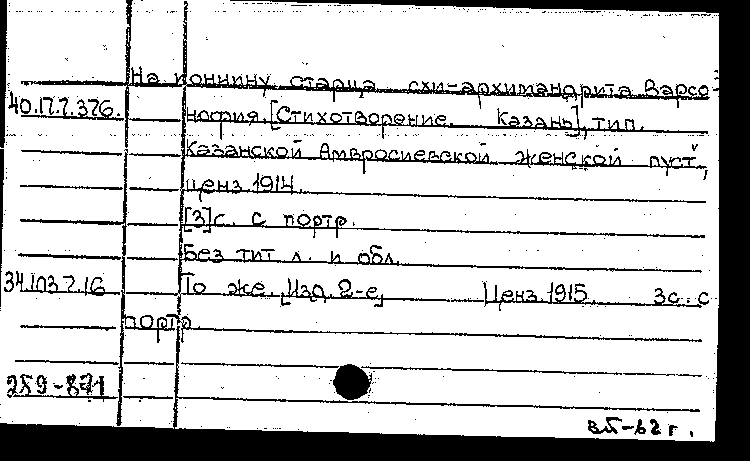 На кончину старца схи-архимандрита Варсо-
40.17.7.376. нофия. [Стихотворение. Казань], тип.
Казанской Амвросиевской женской пуст.,
ценз. 1914.
[3]с. с портр.
Без тит. л. и обл.
34.103.7.16 То же. [Изд. 2-е] Ценз. 1915. 3с. с
портр.
259-871
ВП-62 г.